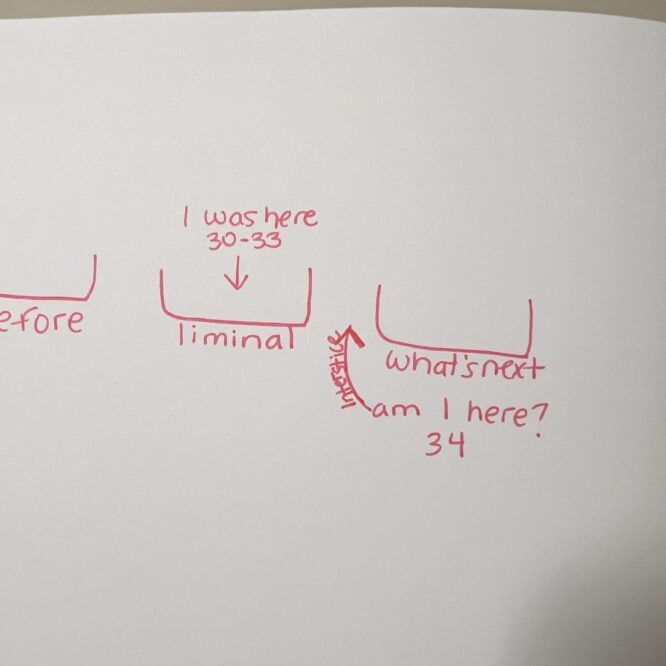 I was here
30-33
efore
liminal
what's next
Interstice
am I here?
34